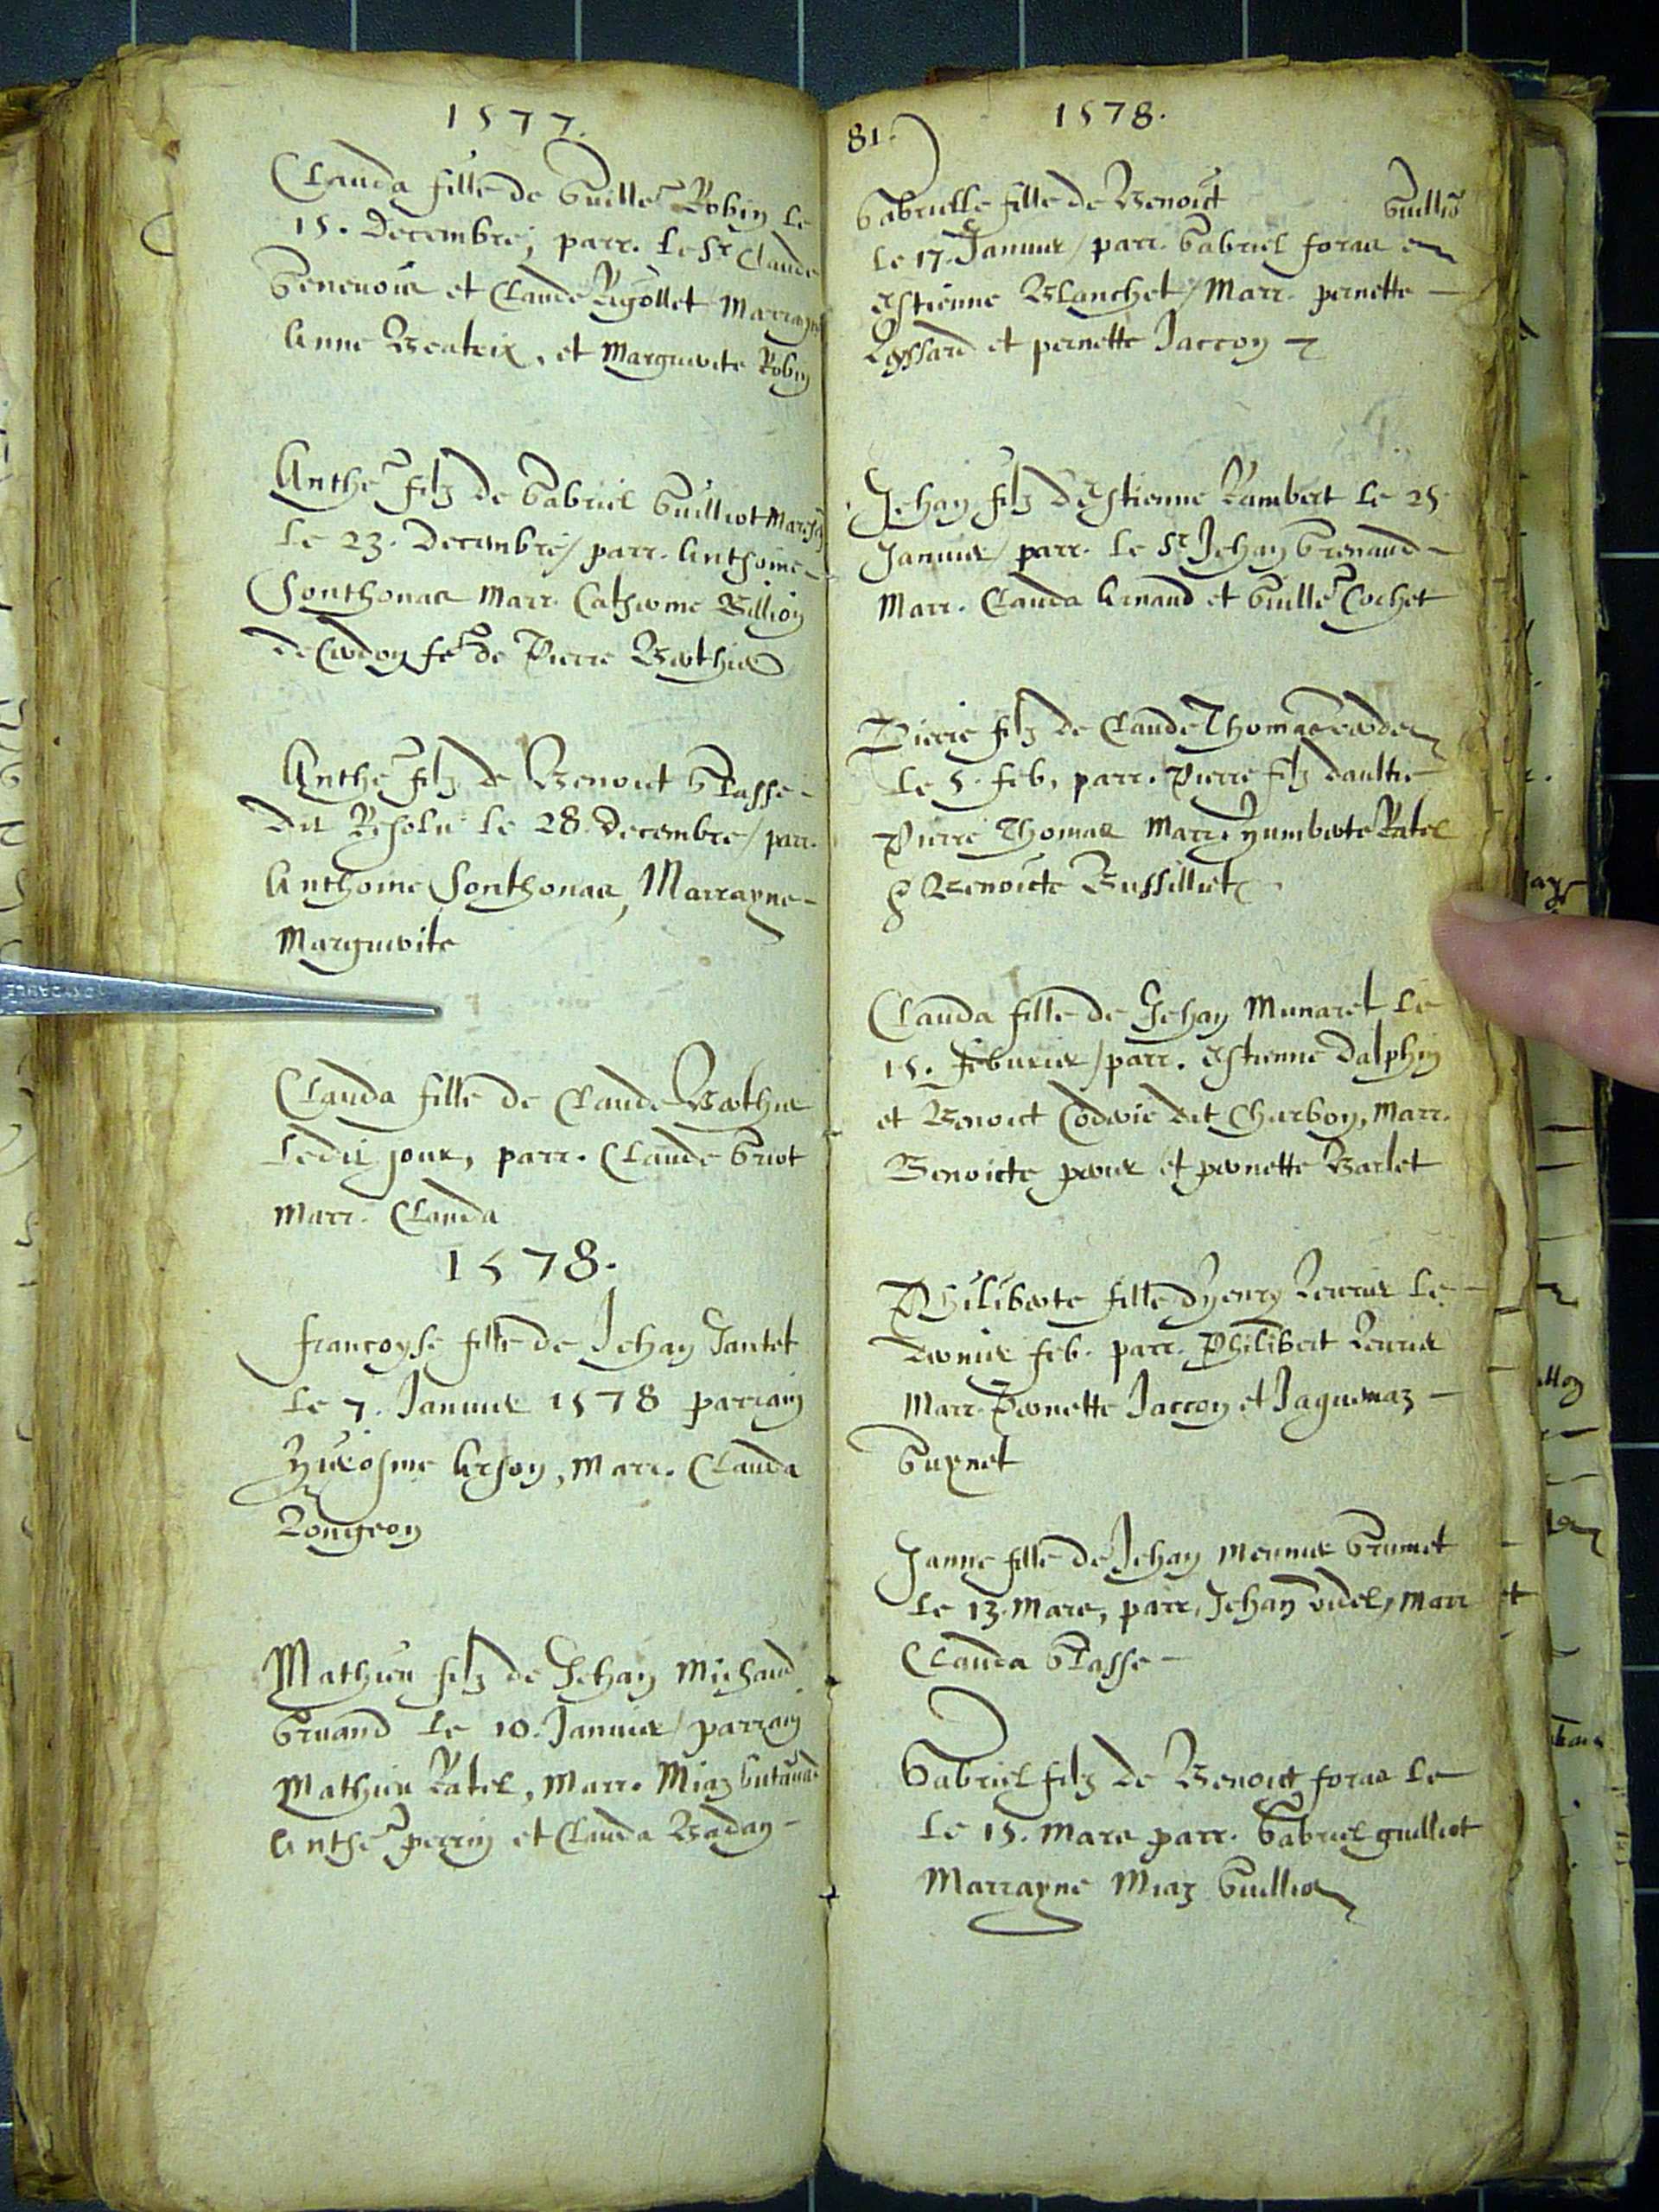 1577.
Clauda fille de Guille Robin le
15. Decembre, parr. le Sr Claude
Geneuois et Claude Rigollet Marrayne
Anne Beatrix, et Marguerite Robin
Anthe filz de Gabriel Guilliot March
le 23. Decembre / parr. Anthoine
Sonthonas Marr. Catherine Billion
de Cerdon fe de Pierre Berthier
Anthe filz de Benoict Grasse
dit Resolu le 28. Decembre / parr.
Anthoine Sonthonas, Marrayne
Marguerite
Clauda fille de Claude Berthier
ledit jour, parr. Claude Griot
Marr. Clauda
1578.
francoyse fille de Jehan Jantet
le 7. Januier 1578 parrain
Hierosme Arson, Marr. Clauda
Rongeon
Mathieu filz de Jehan Michaud
Gruand le 10. Januier / parrain
Mathieu Ratel, Marr. Miaz
Anthe perrin et Clauda Badan
81.
1578.
Gabrielle fille de Benoict Guillio
le 17. Januier / parr. Gabriel foras et
Estienne Blanchet / Marr. pernette
Rossard et pernette Jaccon
Jehan filz dEstienne Rambert le 25
Januier / parr. le Sr Jehan Grenaud
Marr. Clauda Arnaud et Guille Cochet
Pierre filz de Claude Thomas
le 5. feb, parr. Pierre filz daultre
Pierre Thomas Marr. Humberte Ratel
& Benoicte Bussilliet
Clauda fille de Jehan Munaret le
15. feburier / parr. Estienne Dalphin
et Benoict Coderie dit Charbon, Marr.
Benoicte perier et pernette Barlet
Philiberte fille dHenry Reurier le
dernier feb. parr. Philibert Reurier
Marr. Pernette Jaccon et Jaquemaz
Guynet
Janne fille de Jehan Meunier Grumet
le 13. Mars, parr. Jehan videl, Marr
Clauda Grasse
Gabriel filz de Benoict foras le
le 15. Mars parr. Gabriel guilliot
Marrayne Miaz Guilliot